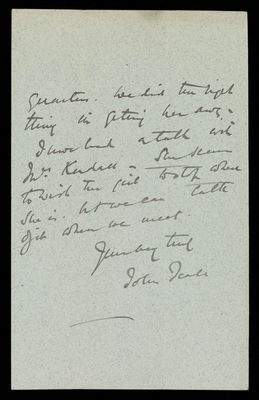 Quarters. We did the right
thing in getting her away.
I have had a talk with
Mrs Kendall - She seems
to wish the girl where
she is. but we can talk
of it when we meet.
Yours very truly
John